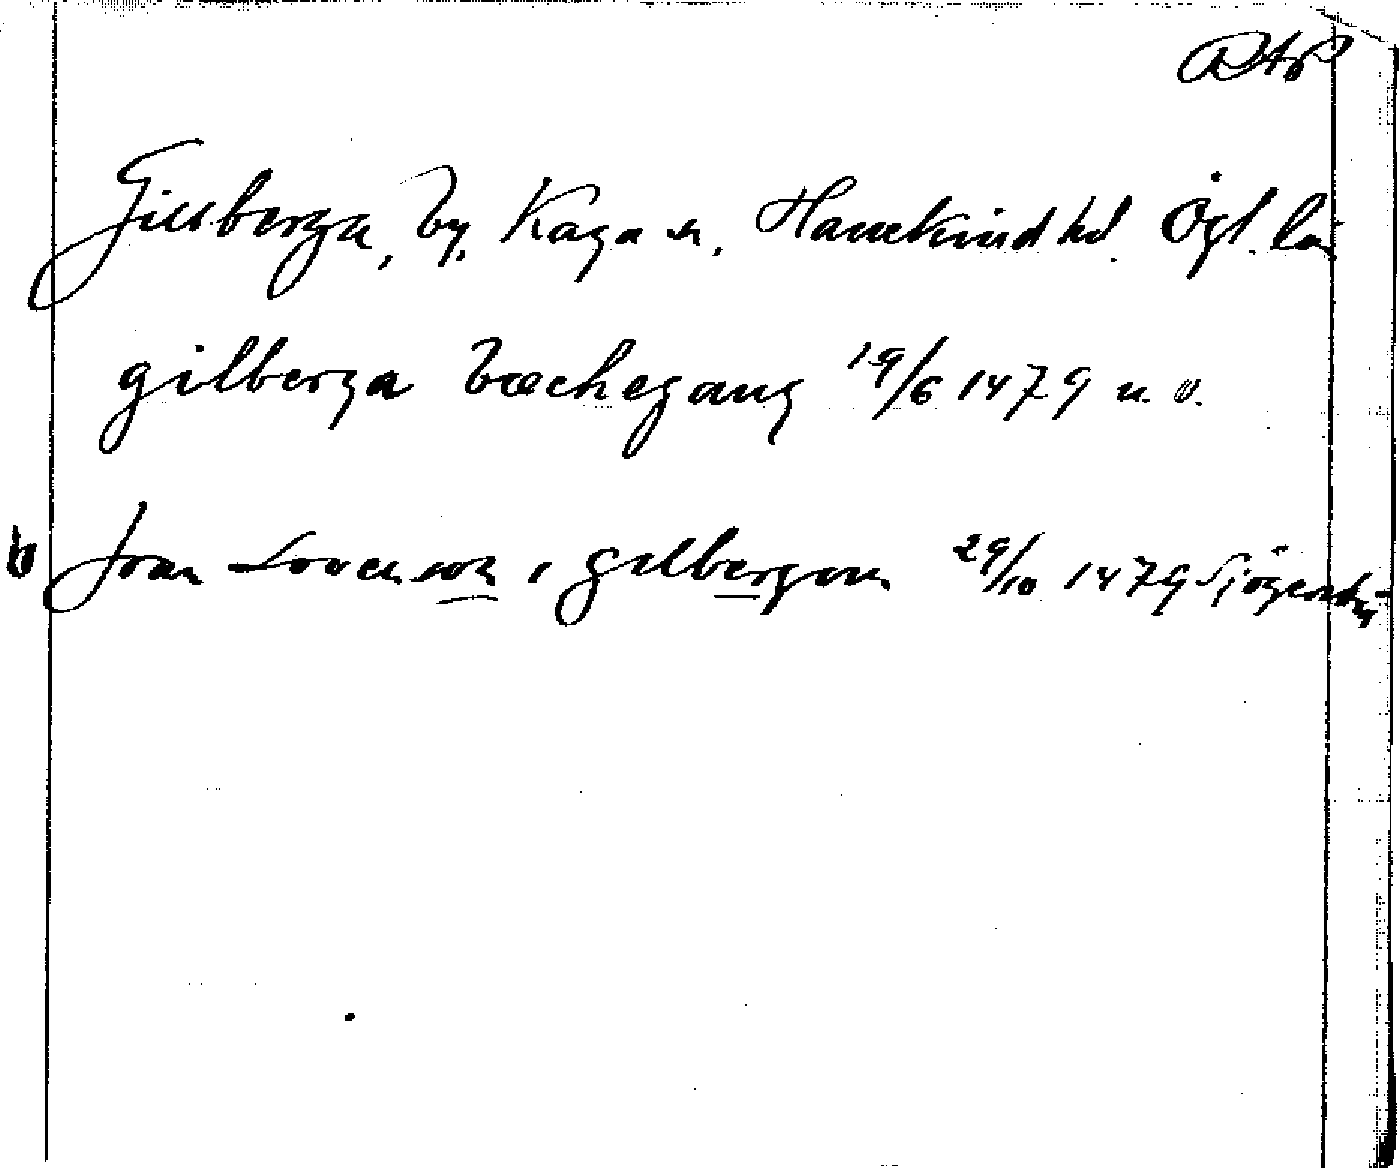 RAP
Gillberga, by, Kaga sn, Hanekind hd. Ögl. län
gilberga bæchegang 19/6 1479 u. o.
b Joan Lovenson i gilbergom 29/10 1479